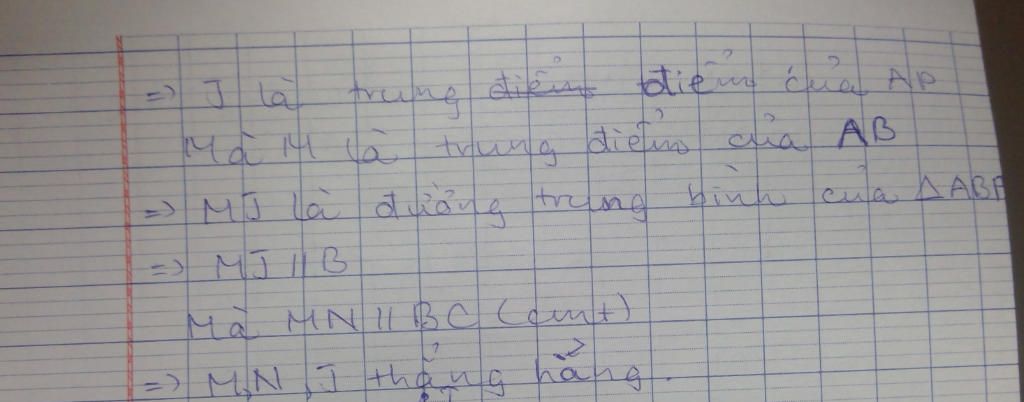 => J là trung điểm điểm của AP
Mà M là trung điểm của AB
=> MJ là đường trung bình của △ABP
=> MJ // B
Mà MN // BC (cmt)
=> M, N, J thẳng hàng.